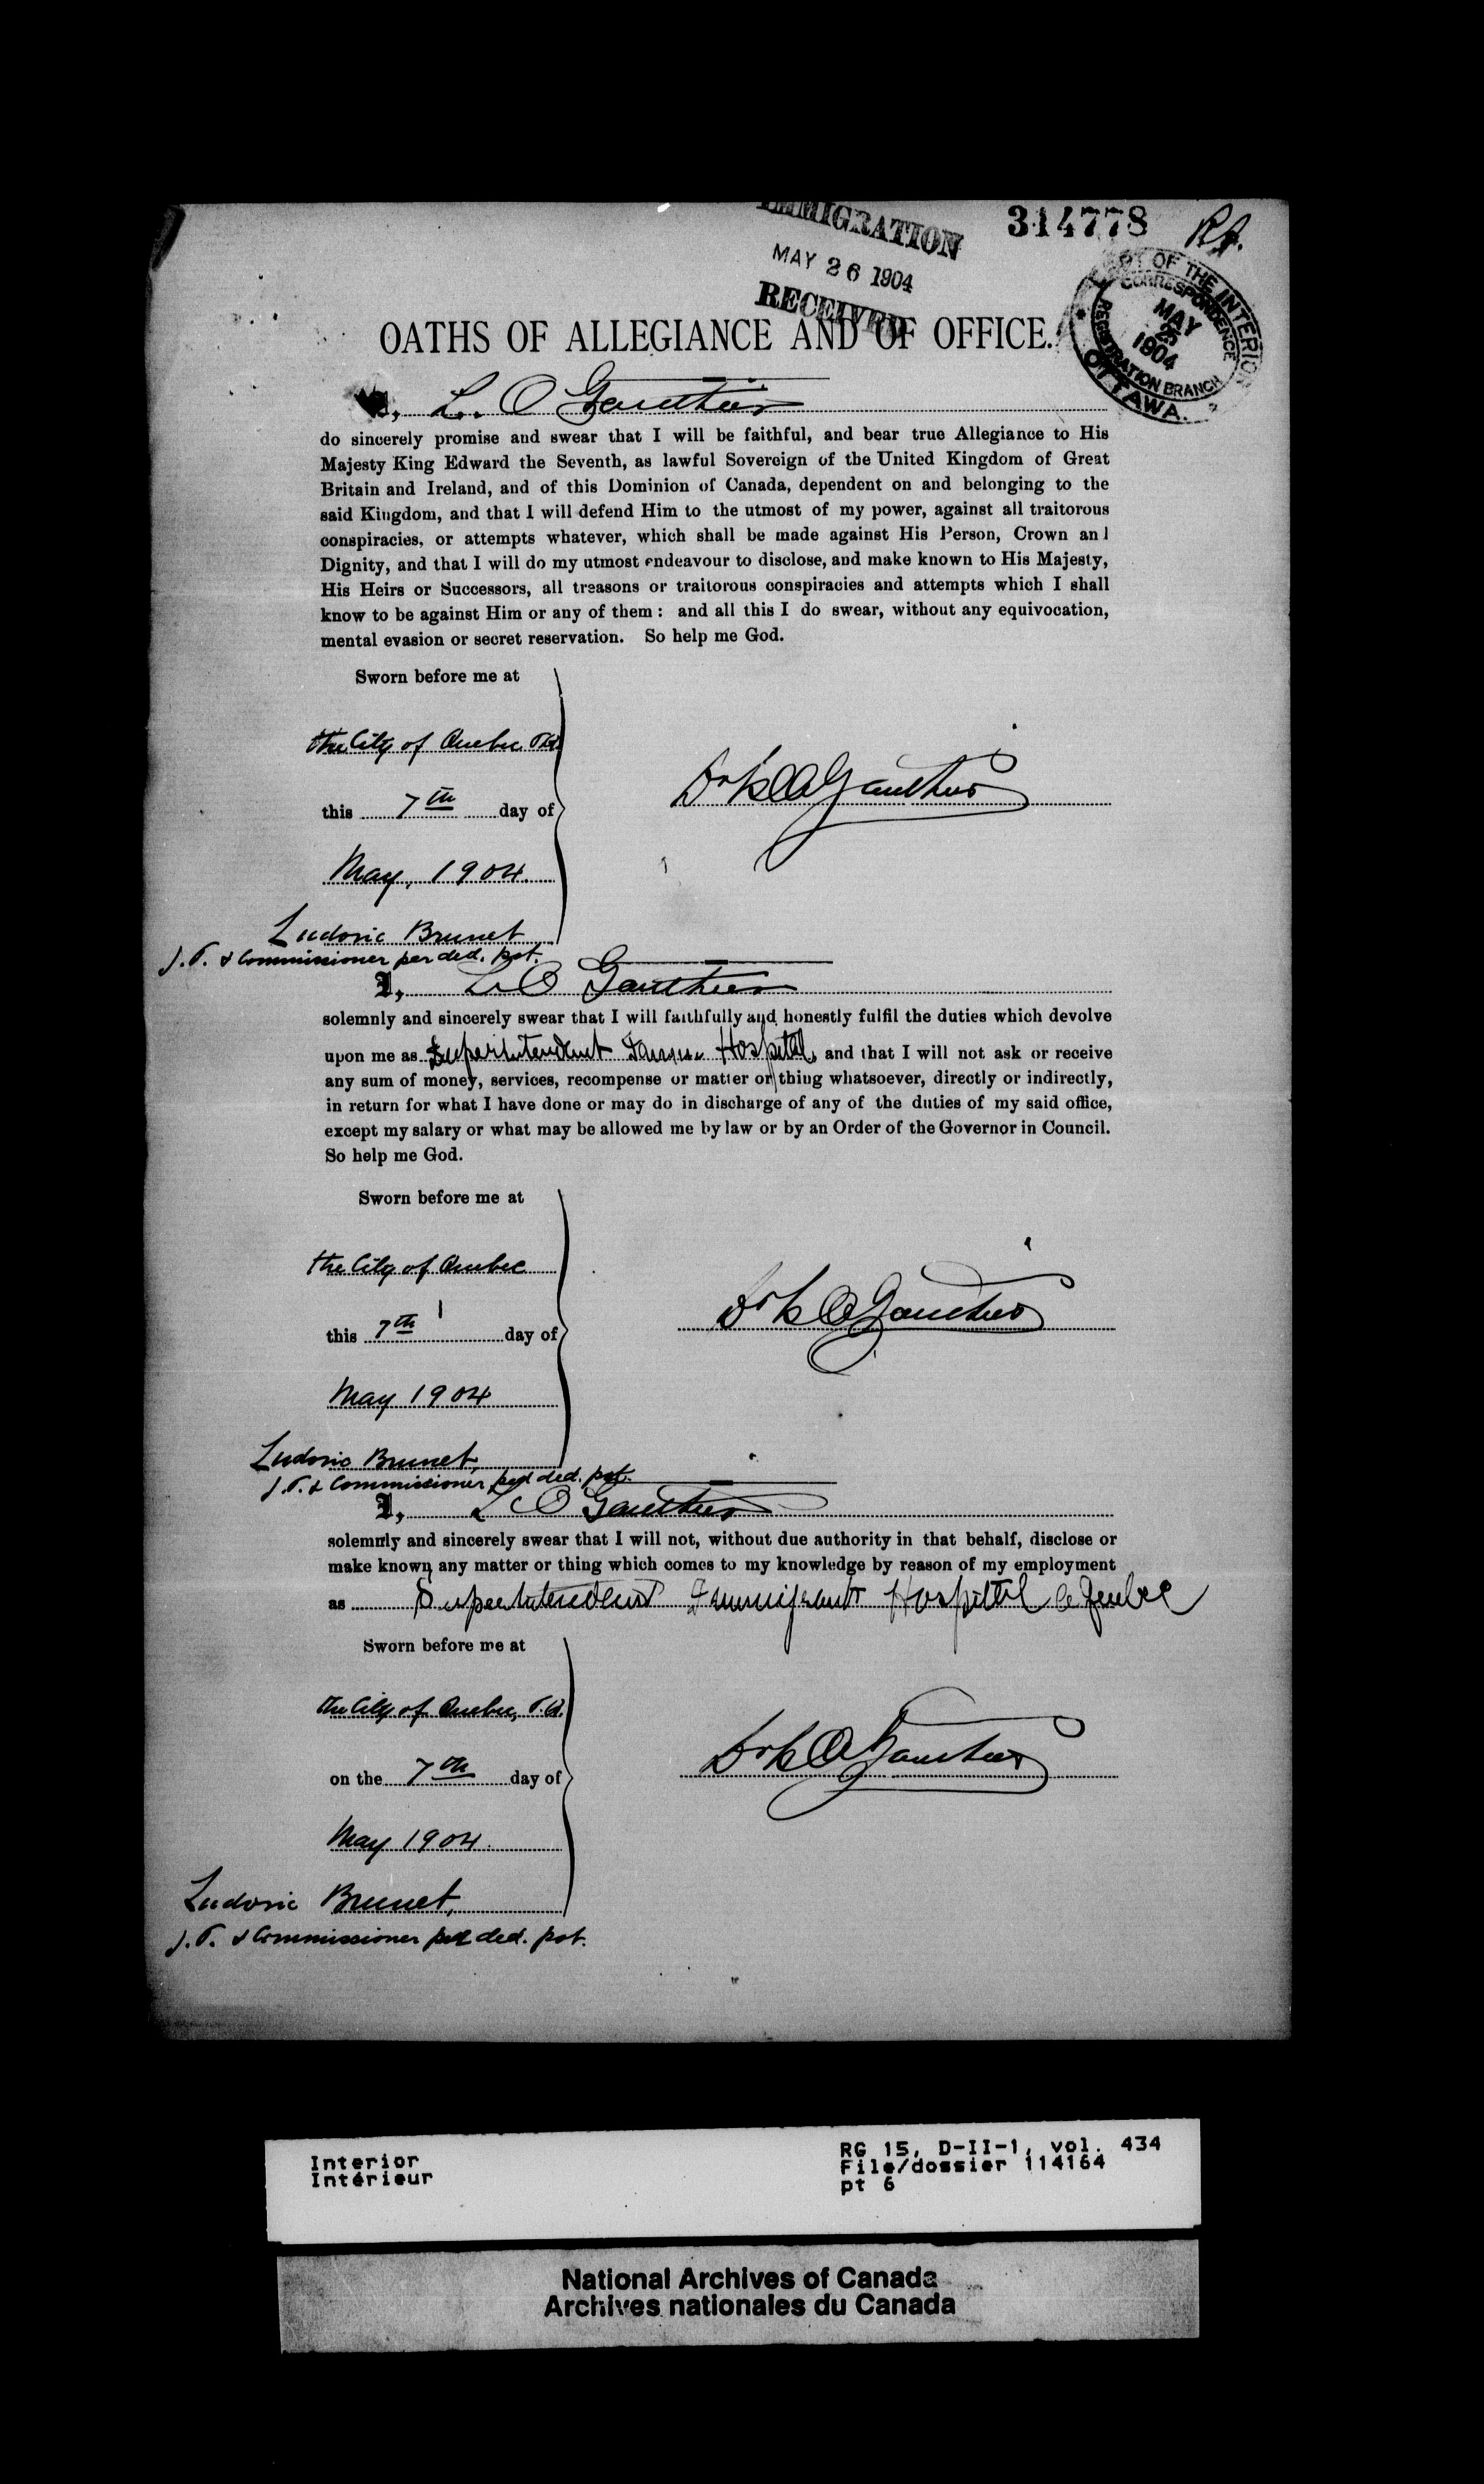 IMMIGRATION
MAY 26 1904
RECEIVED
314778
DEPT OF THE INTERIOR
CORRESPONDENCE
MAY
25
1904
REGISTRATION BRANCH
OTTAWA.
OATHS OF ALLEGIANCE AND OF OFFICE.
I, L. O Gauthier
do sincerely promise and swear that I will be faithful, and bear true Allegiance to His
Majesty King Edward the Seventh, as lawful Sovereign of the United Kingdom of Great
Britain and Ireland, and of this Dominion of Canada, dependent on and belonging to the
said Kingdom, and that I will defend Him to the utmost of my power, against all traitorous
conspiracies, or attempts whatever, which shall be made against His Person, Crown and
Dignity, and that I will do my utmost endeavour to disclose, and make known to His Majesty,
His Heirs or Successors, all treasons or traitorous conspiracies and attempts which I shall
know to be against Him or any of them : and all this I do swear, without any equivocation,
mental evasion or secret reservation. So help me God.
Sworn before me at
the City of Quebec P.Q.
this 7th day of
May, 1904.
Dr L O Gauthier
Ludovic Brunet
J.P. & Commissioner per ded. pot.
I, L O Gauthier
solemnly and sincerely swear that I will faithfully and honestly fulfil the duties which devolve
upon me as Superintendent Hospital, and that I will not ask or receive
any sum of money, services, recompense or matter or thing whatsoever, directly or indirectly,
in return for what I have done or may do in discharge of any of the duties of my said office,
except my salary or what may be allowed me by law or by an Order of the Governor in Council.
So help me God.
Sworn before me at
the City of Quebec
this 7th day of
May 1904
Dr L O Gauthier
Ludovic Brunet,
J.P. & Commissioner per ded. pot.
I, L O Gauthier
solemnly and sincerely swear that I will not, without due authority in that behalf, disclose or
make known any matter or thing which comes to my knowledge by reason of my employment
as Superintendent Immigrants Hospital a Quebec
Sworn before me at
the City of Quebec, P.Q.
on the 7th day of
May 1904.
Dr L O Gauthier
Ludovic Brunet,
J.P. & Commissioner per ded. pot.
Interior
Intérieur
RG 15, D-II-1, vol. 434
File/dossier 114164
pt 6
National Archives of Canada
Archives nationales du Canada